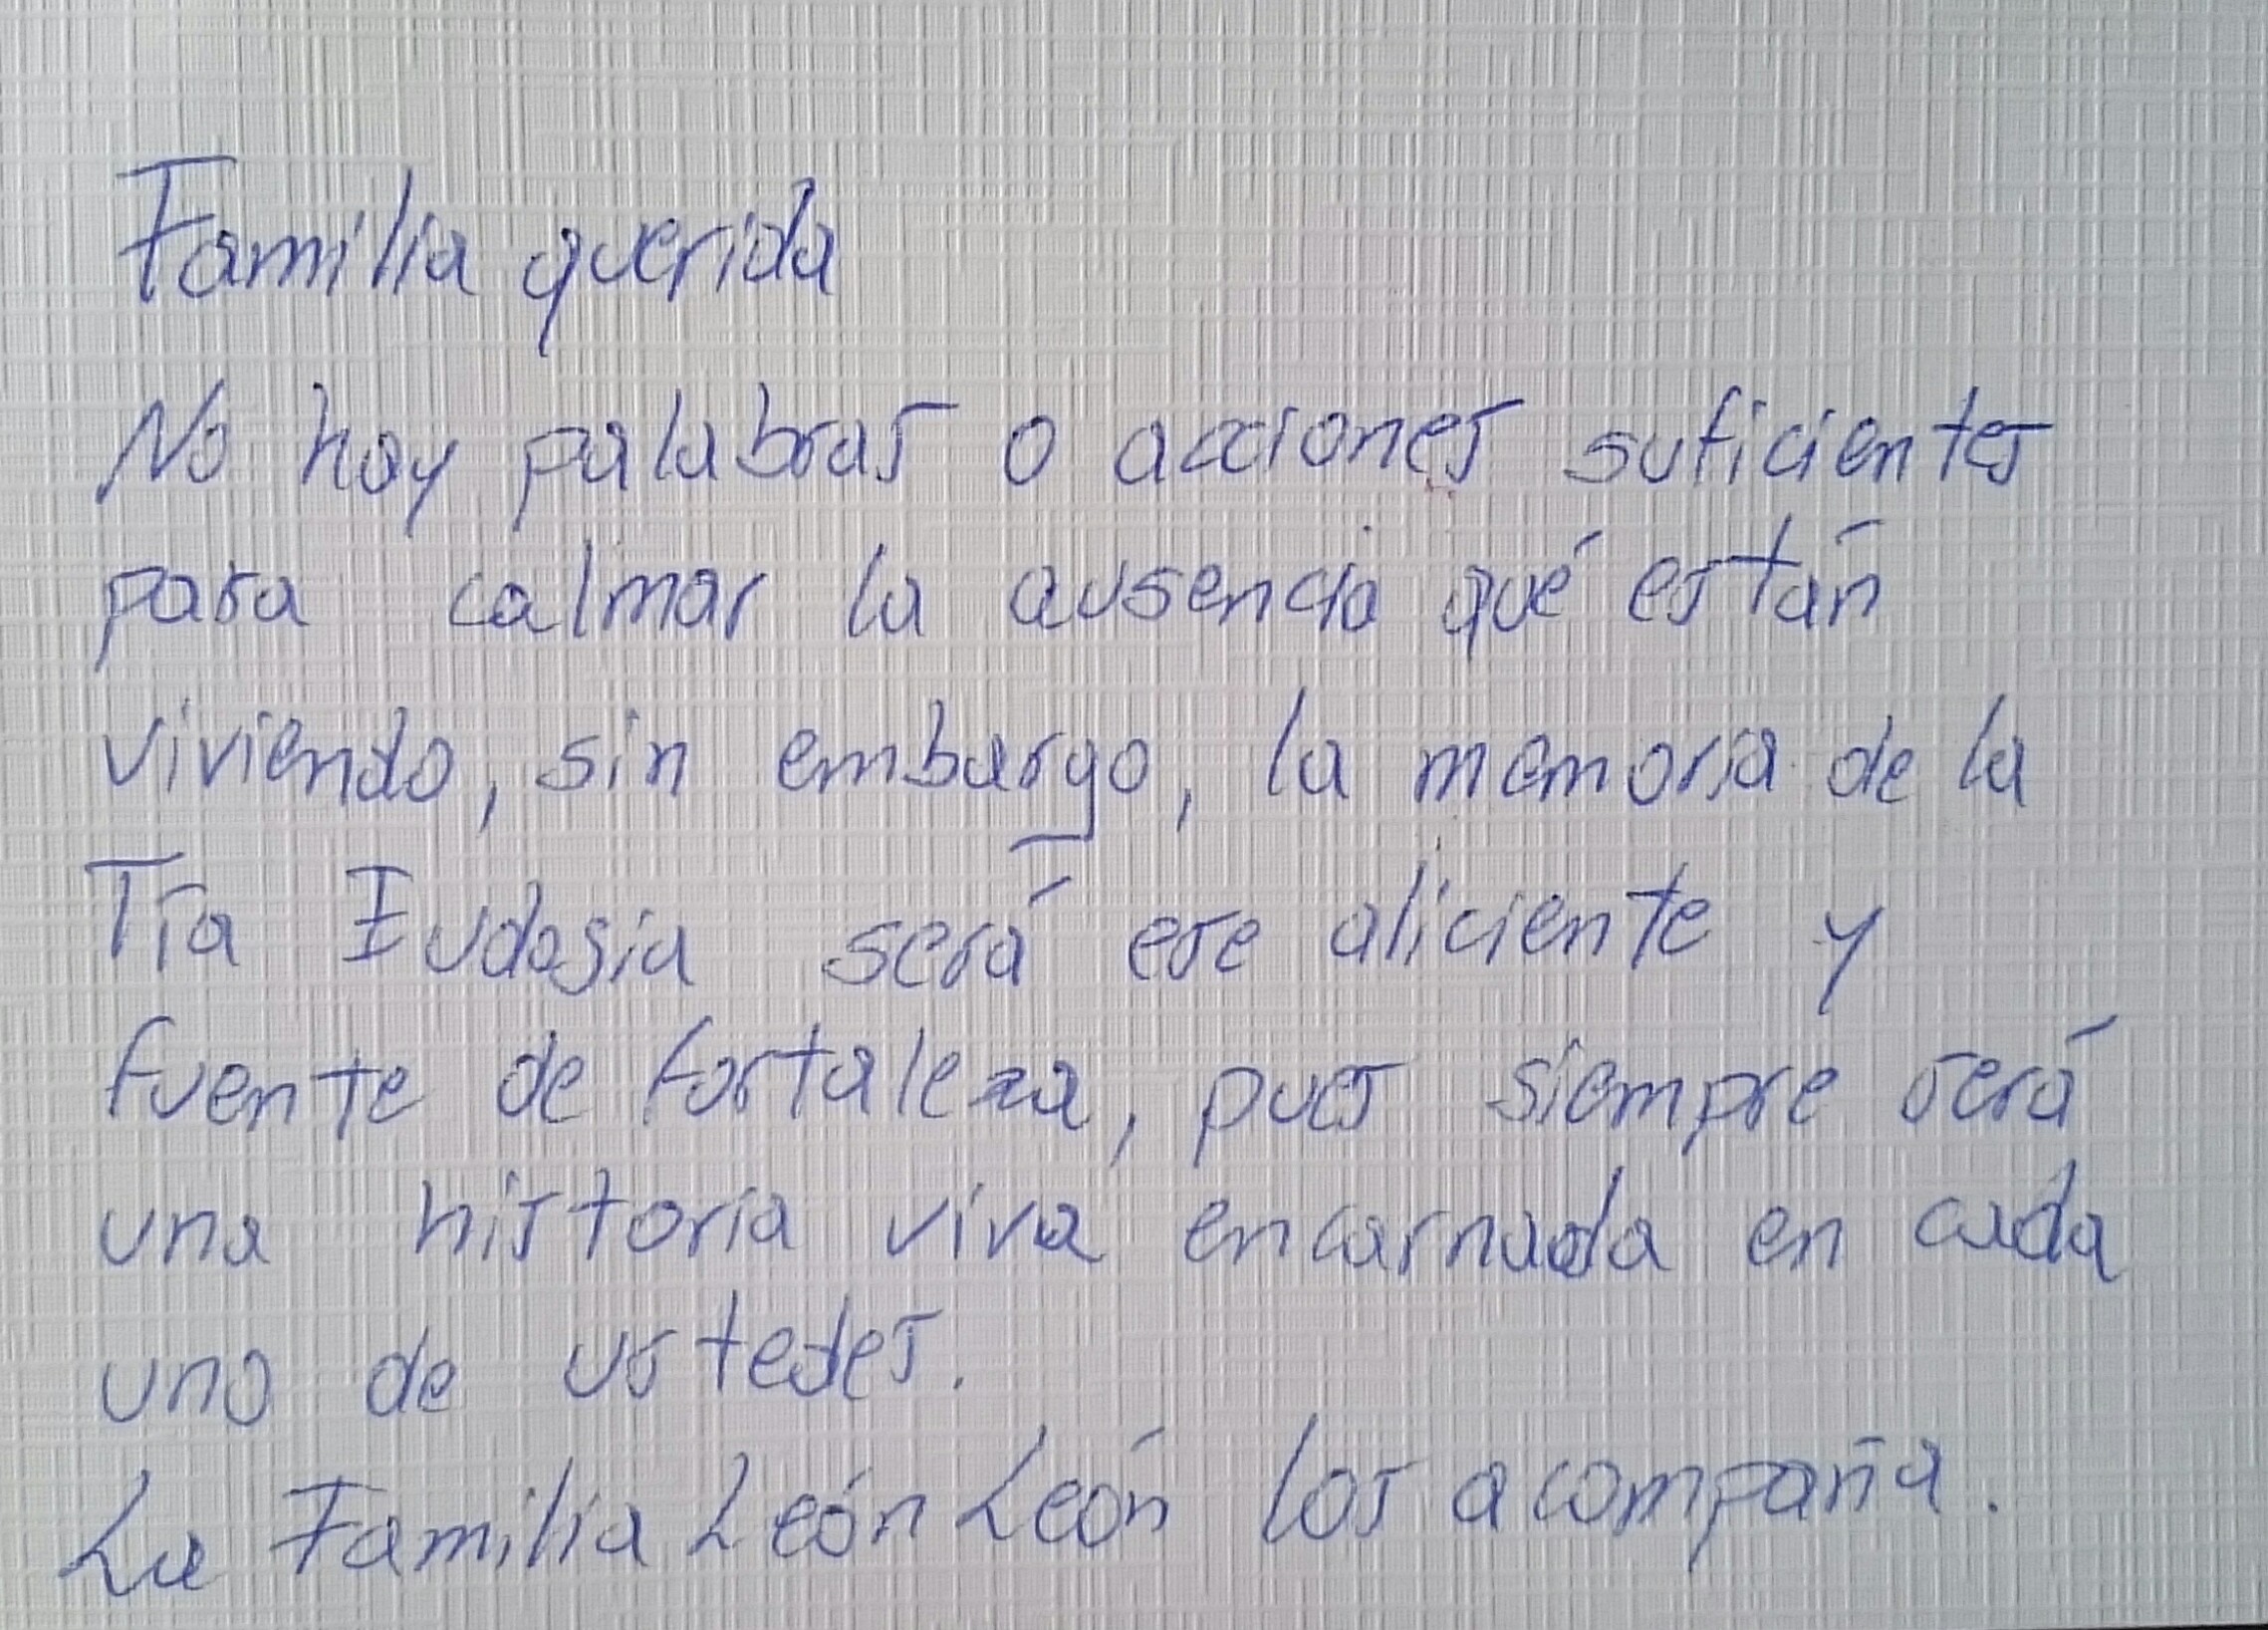 Familia querida
No hay palabras o acciones suficientes
para calmar la ausencia qué están
viviendo, sin embargo, la memoria de la
Tía Eudosia será ese aliciente y
fuente de fortaleza, pues siempre será
una historia viva encarnada en cada
uno de ustedes.
La Familia León León los acompaña.